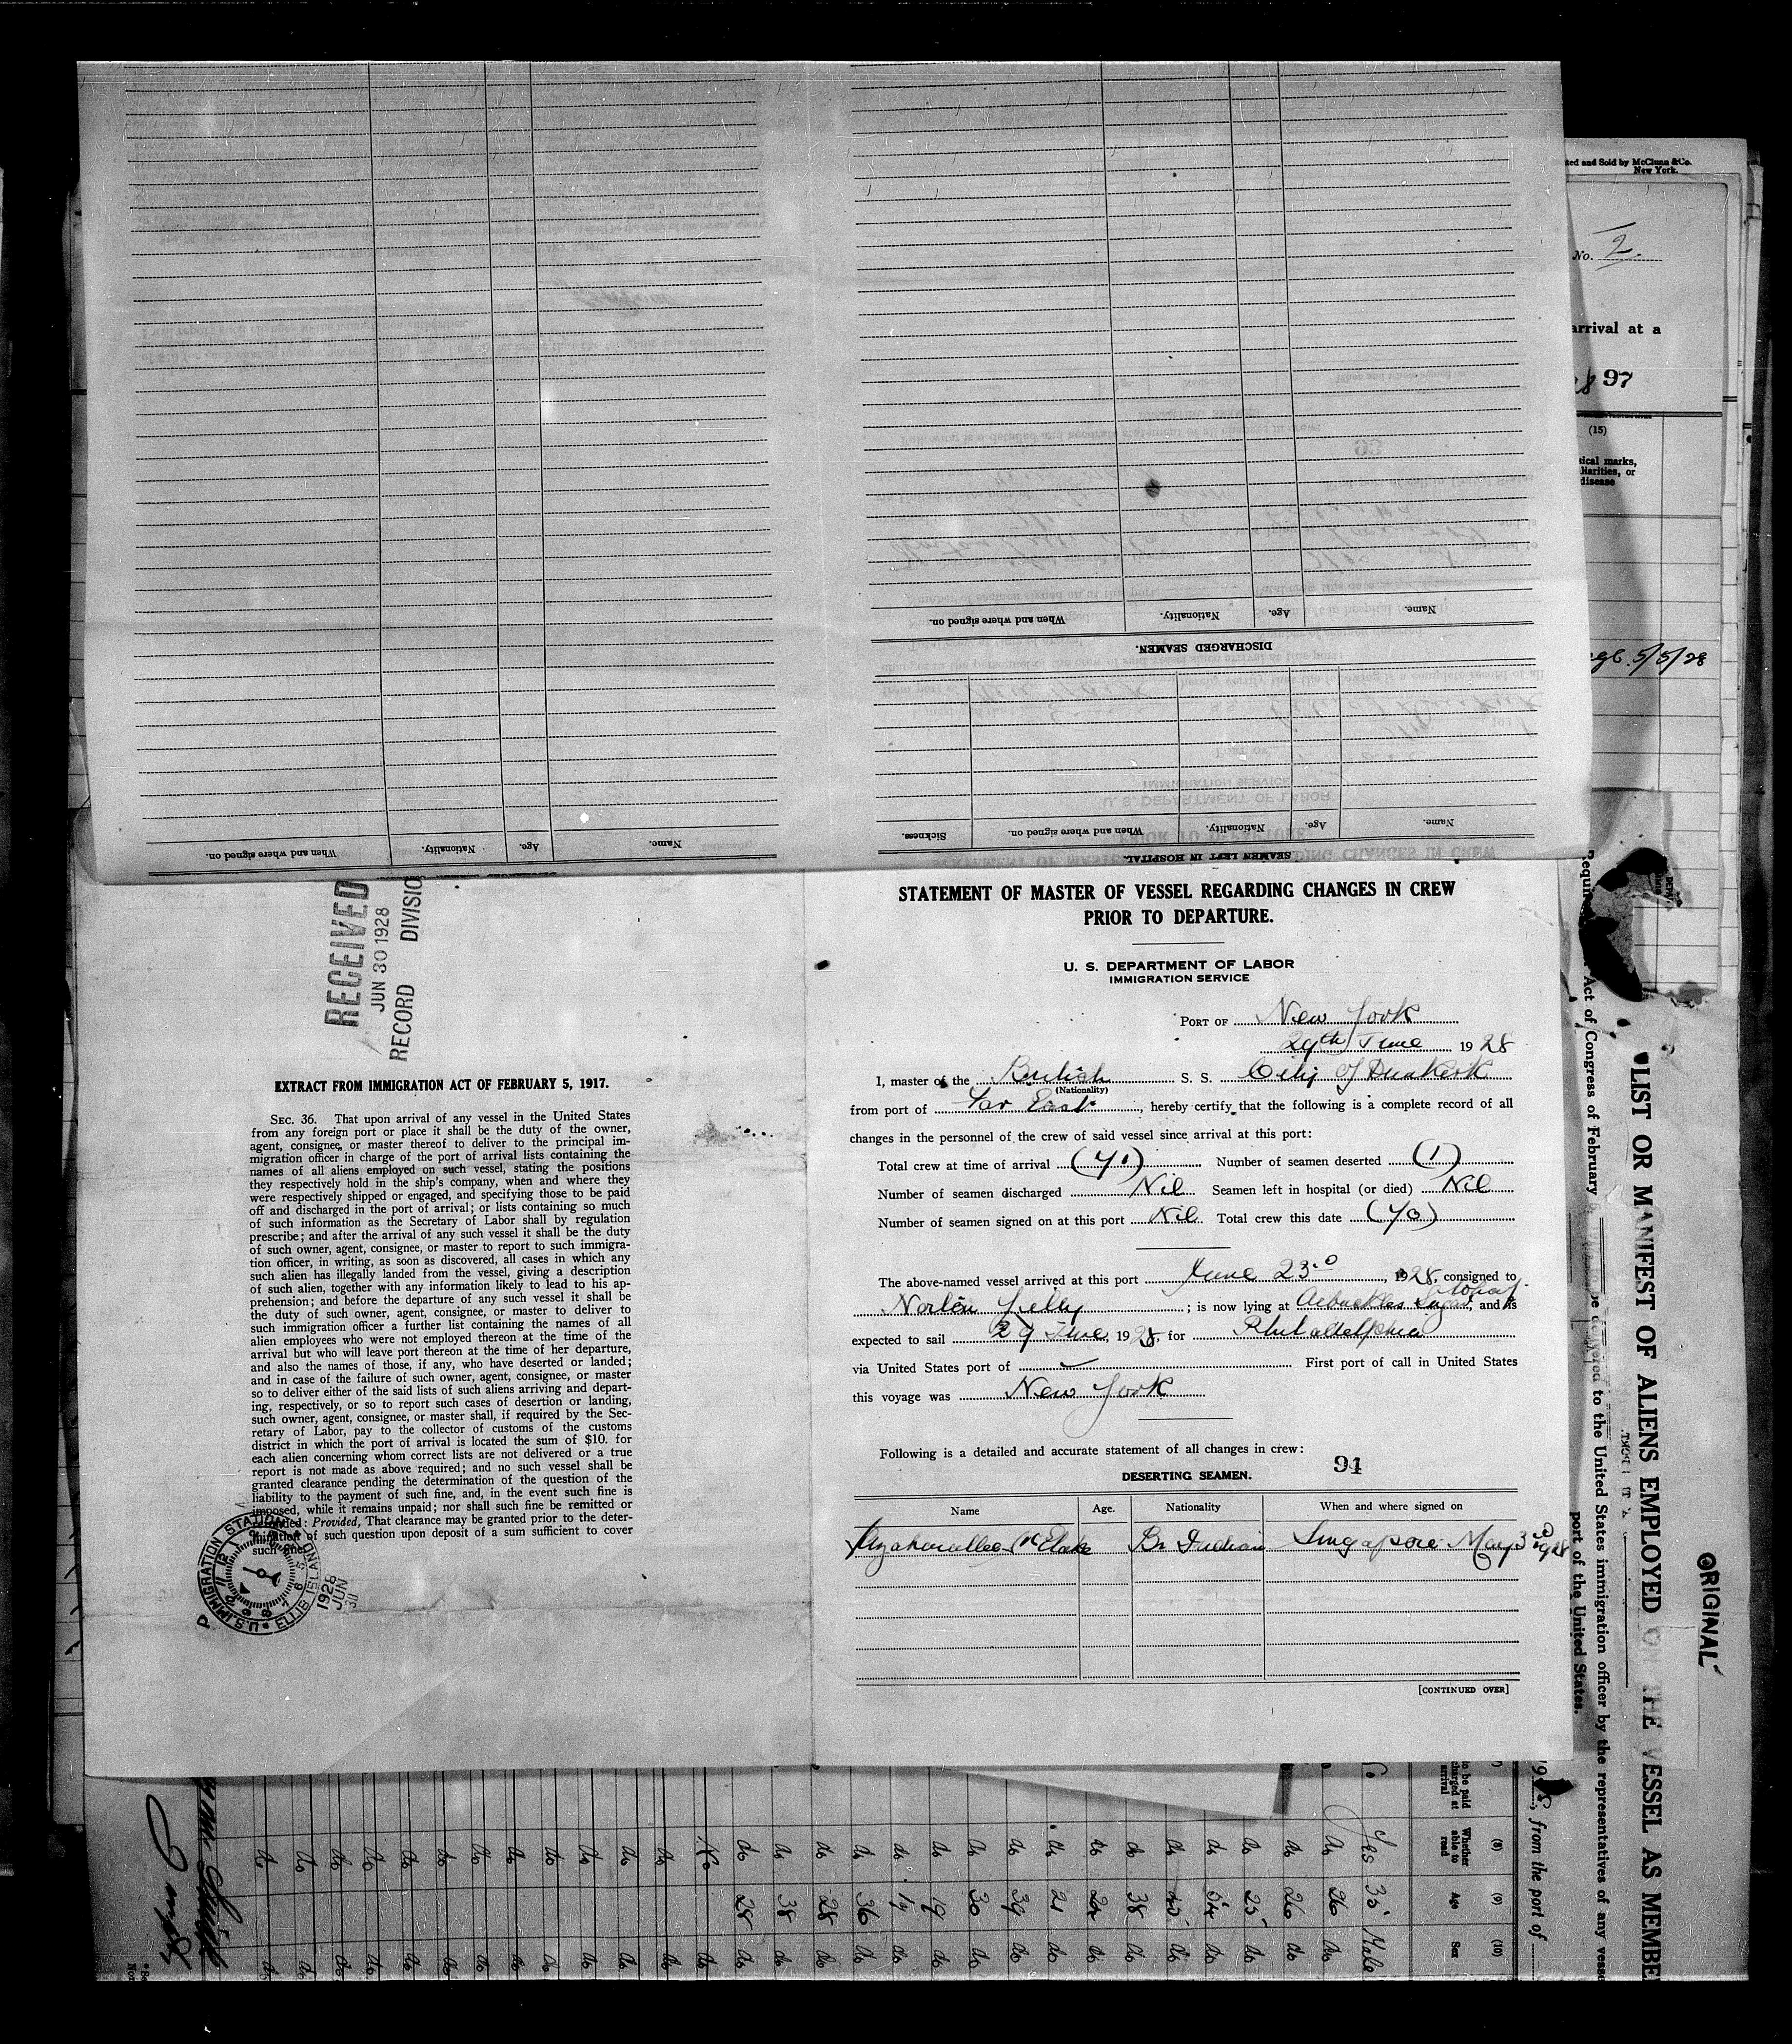 Name.
Age.
Nationality.
When and where signed on.
DISCHARGED SEAMEN.
Name.
Age.
Nationality.
When and where signed on.
Sickness.
SEAMEN LEFT IN HOSPITAL.
Name.
Age.
Nationality.
When and where signed on.
RECEIVED
JUN 30 1928
RECORD DIVISIO
EXTRACT FROM IMMIGRATION ACT OF FEBRUARY 5, 1917.
SEC. 36. That upon arrival of any vessel in the United States
from any foreign port or place it shall be the duty of the owner,
agent, consignee, or master thereof to deliver to the principal im-
migration officer in charge of the port of arrival lists containing the
names of all aliens employed on such vessel, stating the positions
they respectively hold in the ship's company, when and where they
were respectively shipped or engaged, and specifying those to be paid
off and discharged in the port of arrival; or lists containing so much
of such information as the Secretary of Labor shall by regulation
prescribe; and after the arrival of any such vessel it shall be the duty
of such owner, agent, consignee, or master to report to such immigra-
tion officer, in writing, as soon as discovered, all cases in which any
such alien has illegally landed from the vessel, giving a description
of such alien, together with any information likely to lead to his ap-
prehension; and before the departure of any such vessel it shall be
the duty of such owner, agent, consignee, or master to deliver to
such immigration officer a further list containing the names of all
alien employees who were not employed thereon at the time of the
arrival but who will leave port thereon at the time of her departure,
and also the names of those, if any, who have deserted or landed;
and in case of the failure of such owner, agent, consignee, or master
so to deliver either of the said lists of such aliens arriving and depart-
ing, respectively, or so to report such cases of desertion or landing,
such owner, agent, consignee, or master shall, if required by the Sec-
retary of Labor, pay to the collector of customs of the customs
district in which the port of arrival is located the sum of $10. for
each alien concerning whom correct lists are not delivered or a true
report is not made as above required; and no such vessel shall be
granted clearance pending the determination of the question of the
liability to the payment of such fine, and, in the event such fine is
imposed, while it remains unpaid; nor shall such fine be remitted or
refunded: Provided, That clearance may be granted prior to the deter-
mination of such question upon deposit of a sum sufficient to cover
such fine.
U.S. IMMIGRATION STATION
ELLIS ISLAND
1928
JUN
STATEMENT OF MASTER OF VESSEL REGARDING CHANGES IN CREW
PRIOR TO DEPARTURE.
U. S. DEPARTMENT OF LABOR
IMMIGRATION SERVICE
PORT OF New York
29th June 1928
I, master of the British S. S. City of Dunkirk
(Nationality)
from port of Far East, hereby certify that the following is a complete record of all
changes in the personnel of the crew of said vessel since arrival at this port:
Total crew at time of arrival (71) Number of seamen deserted (1)
Number of seamen discharged Nil Seamen left in hospital (or died) Nil
Number of seamen signed on at this port Nil Total crew this date (70)
The above-named vessel arrived at this port June 23rd, 1928, consigned to
Norton Lilly; is now lying at Arbuckles Sugar Wharf, and is
expected to sail 29 June, 1928, for Philadelphia
via United States port of First port of call in United States
this voyage was New York
Following is a detailed and accurate statement of all changes in crew:
94
DESERTING SEAMEN.
Name Age. Nationality When and where signed on
Br Indian Singapore May 3rd 1928
[CONTINUED OVER]
ted and Sold by McClunn & Co.
New York.
No. 2.
arrival at a
8 97
(15)
ical marks,
liarities, or
disease
5/5/28
ORIGINAL
LIST OR MANIFEST OF ALIENS EMPLOYED ON THE VESSEL AS MEMBE
Act of Congress of February
be delivered to the United States immigration officer by the representatives of any vesse
port of the United States.
, from the port of
(8)
Whether
able to
read
(9)
Age
(10)
Sex
to be paid
charged at
arrival
Yes 35 Male
do 26 do
do 26 do
do 25 do
do 38 do
do 21 do
do 39 do
do 30 do
do 19 do
do 19 do
do 36 do
do 28 do
do 38 do
do 28 do
No do